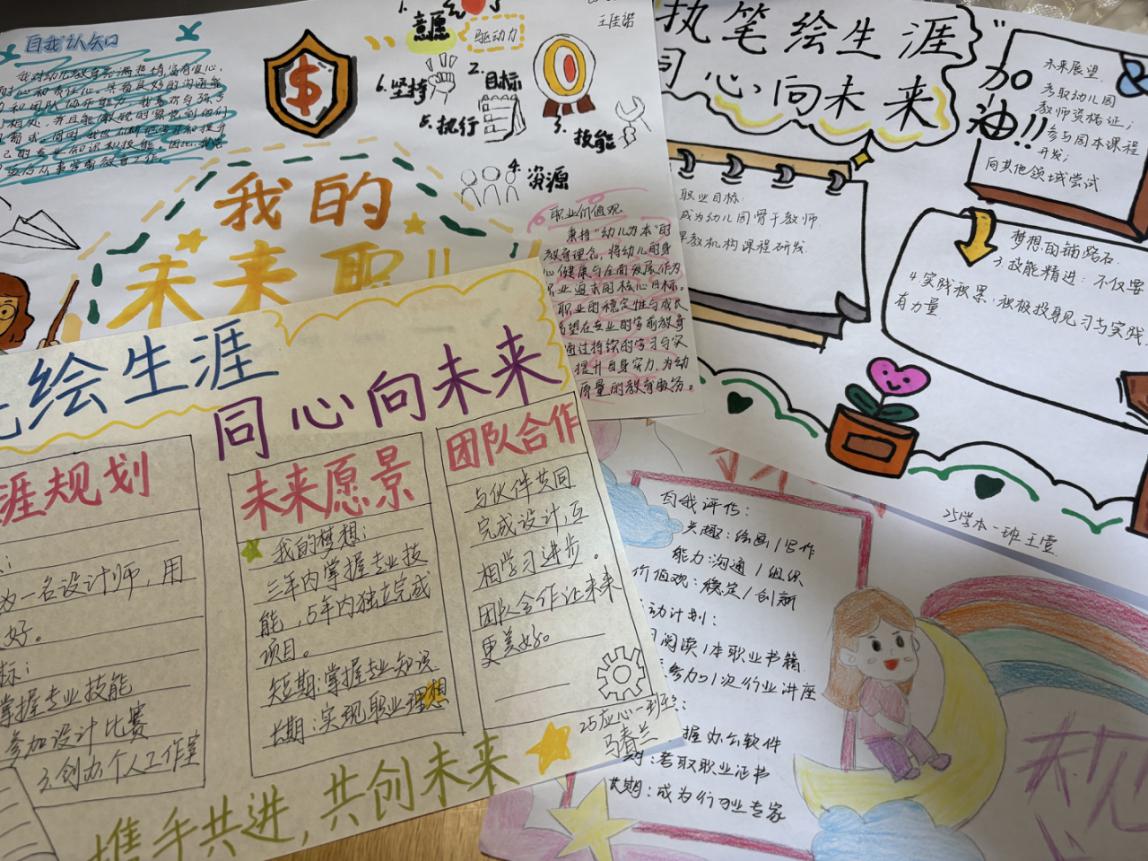 自我认知
我的
未来职业
1.意愿
驱动力
2.目标
3.技能
4.资源
5.执行
6.坚持
王佳诺
职业价值观
秉持“幼儿为本”的
教育理念，将幼儿的身
心健康与全面发展作为
职业追求的核心目标。
职业的稳定性与成长
希望在专业的学前教育
通过持续的学习与实
提升自身实力，为幼
质量的教育服务。
执笔绘生涯
同心向未来
“加
油!!
未来展望
考取幼儿园
教师资格证；
参与园本课程
开发；
向其他领域尝试
职业目标：
成为幼儿园骨干教师
早教机构课程研发
梦想的铺路石
3.技能精进：不仅要
4.实践积累：积极投身见习与实践
有力量
25学本一班王萱
绘生涯
同心向未来
涯规划
为一名设计师，用
好。
标：
掌握专业技能
参加设计比赛
3.创办个人工作室
未来愿景
我的梦想：
三年内掌握专业技
能，5年内独立完成
项目。
短期：掌握专业知识
长期：实现职业理想
团队合作
与伙伴共同
完成设计，互
相学习进步。
团队合作让未来
更美好。
马春兰
携手共进，共创未来
自我评估：
兴趣：绘画/写作
能力：沟通/组织
价值观：稳定/创新
动计划：
阅读1本职业书籍
参加1次行业讲座
握办公软件
期：考取职业证书
长期：成为行业专家